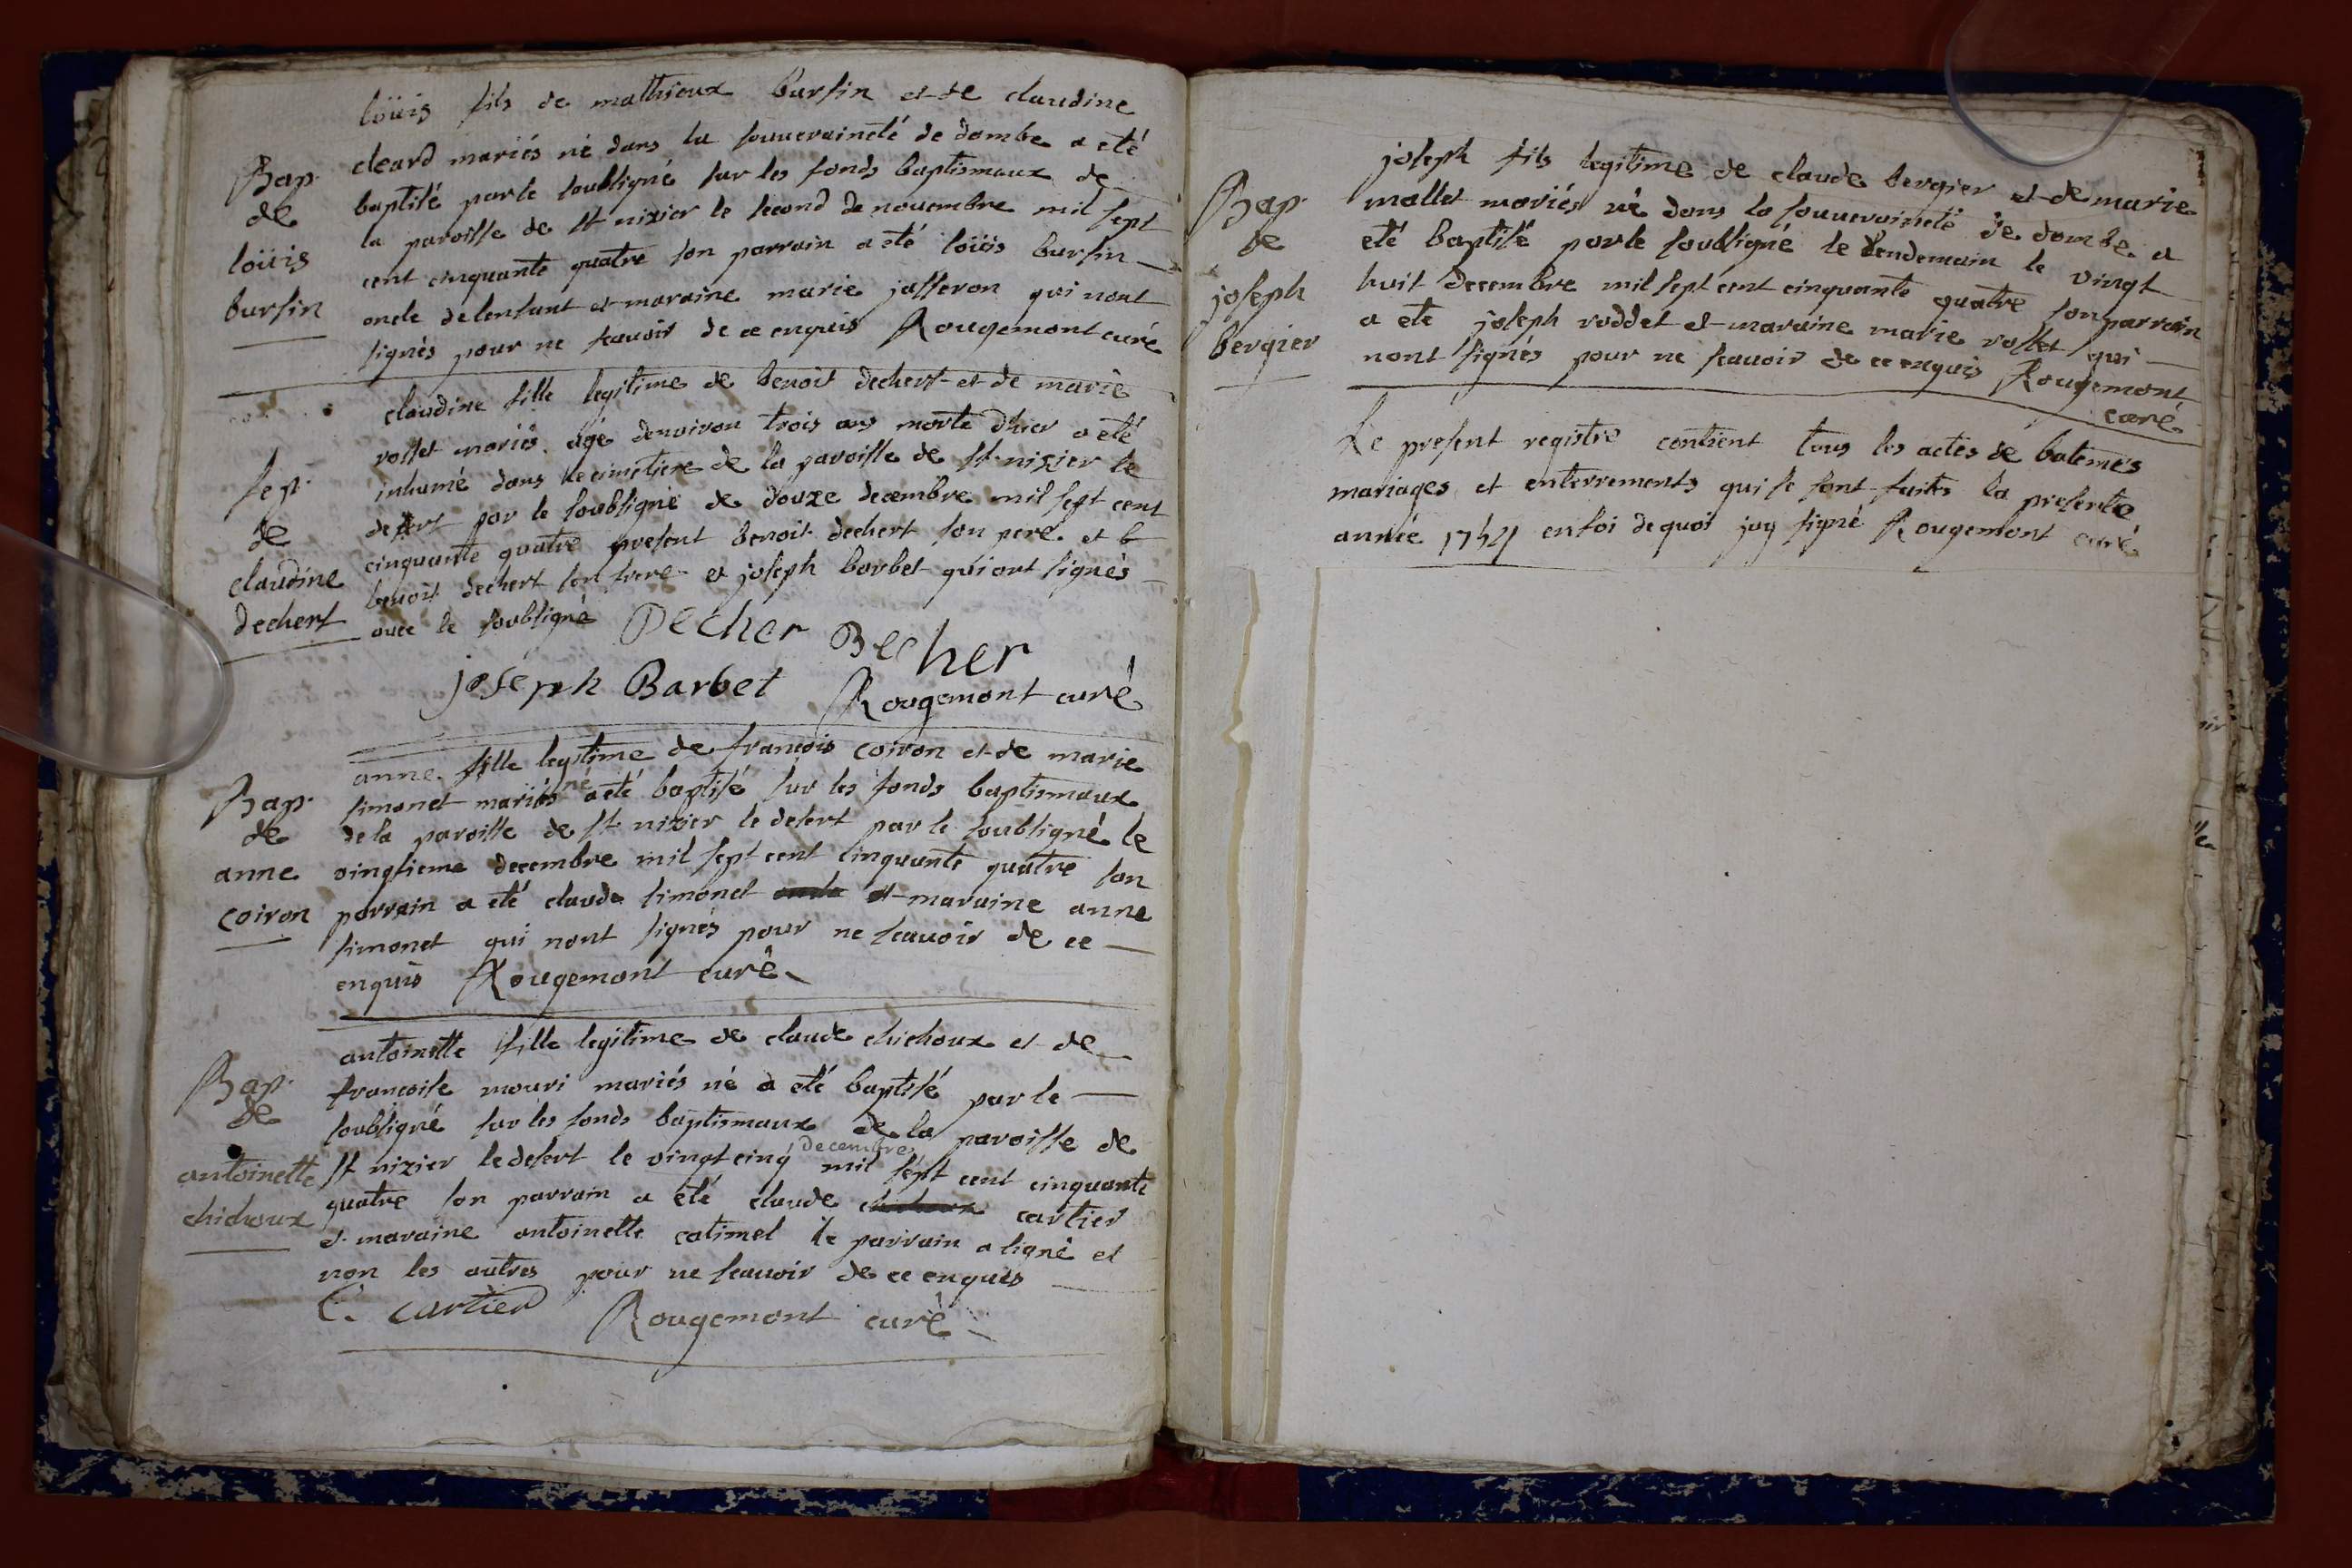 loüis fils de mathieux bursin et de claudine
cleard mariés né dans la souueraineté de dombe a eté
baptisé par le soubsigné sur les fonds baptismaux de
la paroisse de st nizier le second de nouembre mil sept
cent cinquante quatre son parrain a eté loüis bursin
oncle de lenfant et maraine marie jasseron qui nont
signés pour ne scauoir de ce enquis Rougemont curé
Bap.
de
loüis
bursin
claudine fille legitime de benoit dechert et de marie
rosset mariés agé denuiron trois ans morte dhier a eté
inhumé dans le cimetiere de la paroisse de st nizier le
desert par le soubsigné de douze decembre mil sept cent
cinquante quatre present benoit dechert son pere et b
benoit dechert son frere et joseph barbet qui ont signés
auec le soubsigné Decher Becher
joseph Barbet Rougemont curé
sep.
de
claudine
dechert
anne fille legitime de francois coiron et de marie
simonet mariés né a eté baptisé sur les fonds baptismaux
de la paroisse de st nizier le desert par le soubsigné le
vingtieme decembre mil sept cent cinquante quatre son
parrain a eté claude simonet et maraine anne
simonet qui nont signés pour ne scauoir de ce
enquis Rougemont curé
Bap.
de
anne
coiron
antoinette fille legitime de claude chichoux et de
francoise mouri mariés né a eté baptisé par le
soubsigné sur les fonds baptismaux de la paroisse de
st nizier le desert le vingt cinq decembre mil sept cent cinquante
quatre son parrain a eté claude chichoux cartier
et maraine antoinette catimel le parrain a signé et
non les autres pour ne scauoir de ce enquis
C. cartier Rougemont curé
Bap.
de
antoinette
chichoux
joseph fils legitime de claude bergier et de marie
mallet mariés né dans la souueraineté de dombe a
eté baptisé par le soubsigné le lendemain le vingt
huit decembre mil sept cent cinquante quatre son parrain
a eté joseph roddet et maraine marie rosset qui
nont signés pour ne scauoir de ce enquis Rougemont
curé
Bap.
de
joseph
bergier
Le present registre contient tous les actes de batemes
mariages et enterrements qui se sont faites la presente
année 1754 en foi de quoi jay signé Rougemont curé